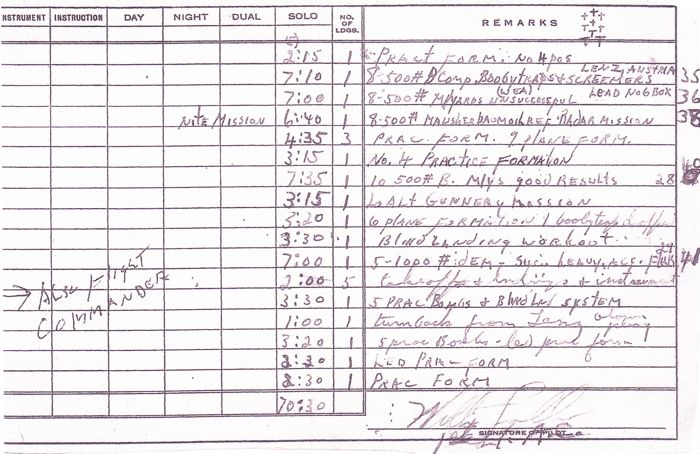 INSTRUMENT INSTRUCTION DAY NIGHT DUAL SOLO NO. OF LDGS. REMARKS
2:15 1 PRACT FORM. NO 4 POS
LENZ, AUSTRIA
7:10 1 8-500# COMP. BOOBYTRAPS & SCREEMERS 35
(WEA)
7:00 1 8-500# M/YARDS UNSUCCESSFUL LEAD NO 6 BOX 36
NITE MISSION 6:40 1 8-500# REF. RADAR MISSION 38
4:35 3 PRAC. FORM. 9 PLANE FORM.
3:15 1 NO. 4 PRACTICE FORMATION
40
7:35 1 10 500# B. M/YS good RESULTS 28
3:15 1 LO ALT GUNNERY MISSION
3:20 1 6 PLANE FORMATION 1
3:30 1 BLIND LANDING WORKOUT
7:00 1 5-1000# DEM- SUC. HEAVY, ACC. FLAK 41
2:00 5 takeoffs & landings & instrument
→ ALSO FLIGHT COMMANDER
3:30 1 5 PRAC BOMBS & BLIND LND SYSTEM
1:00 1 turnback from
3:20 1 5 prac Bombs - led prac form
2:30 1 LED PRAC FORM
2:30 1 PRAC FORM
70:30
SIGNATURE OF PILOT
1st Lt. A.C.